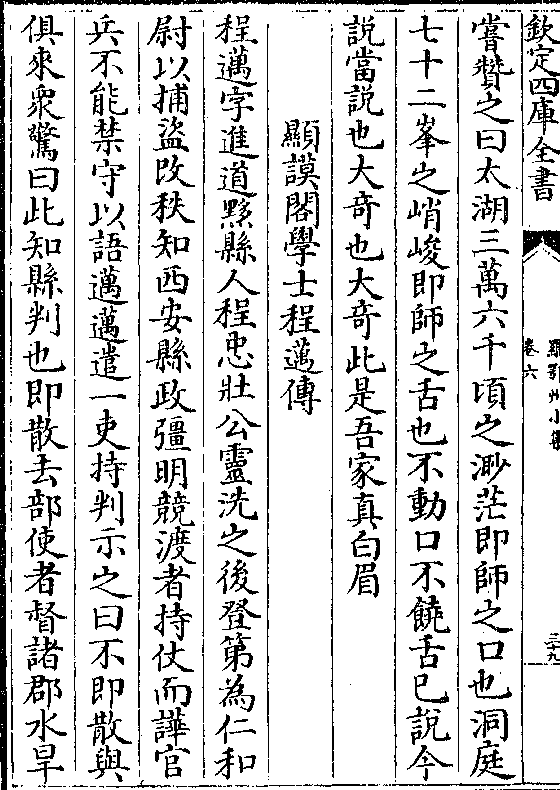 欽定四庫全書
羅鄂州小集
卷六
三十九
嘗贊之曰太湖三萬六千頃之渺茫即師之口也洞庭
七十二峯之峭峻即師之舌也不動口不饒舌已說今
說當說也大奇也大奇此是吾家真白眉
顯謨閣學士程邁傳
程邁字進道黟縣人程忠壯公靈洗之後登第為仁和
尉以捕盜改秩知西安縣政彊明競渡者持仗而譁官
兵不能禁守以語邁邁遣一吏持判示之曰不即散與
俱來衆驚曰此知縣判也即散去部使者督諸郡水旱